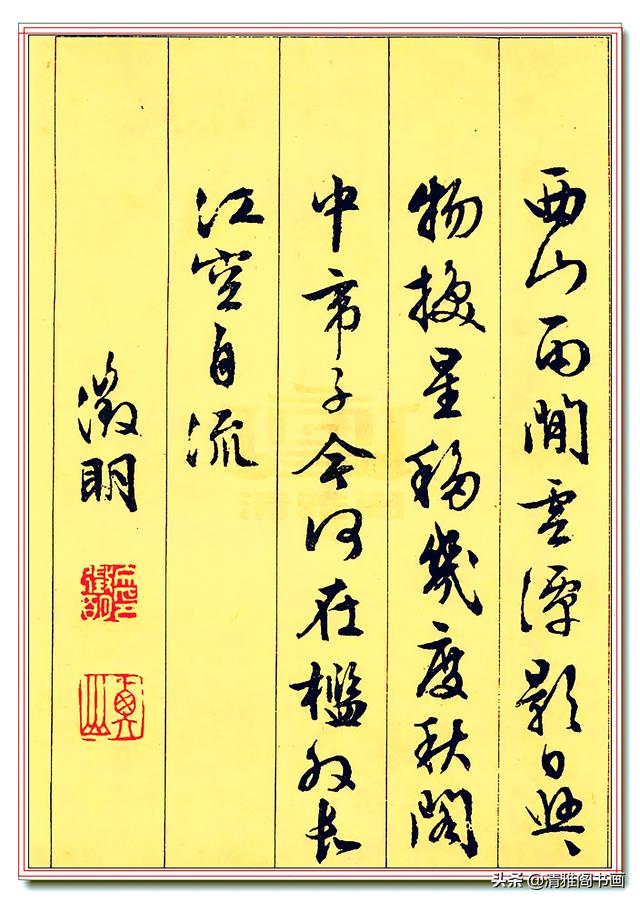 西山雨閒雲潭影日悠々
物換星移幾度秋閣
中帝子今何在檻外長
江空自流
徵明
衡山
清雅阁
头条 @清雅阁书画